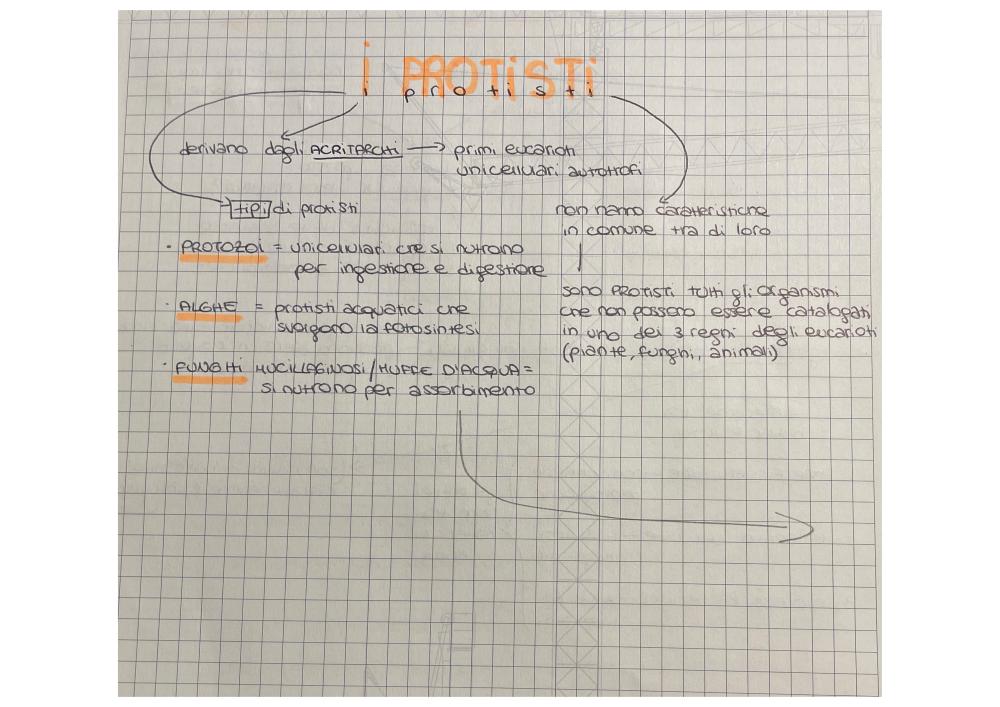 i PROTiSTi
i protisti
derivano dagli ACRITARCHI → primi eucarioti
unicellulari autotrofi
tipi di protisti
• PROTOZOI = unicellulari che si nutrono
per ingestione e digestione
• ALGHE = protisti acquatici che
svolgono la fotosintesi
• FUNGHI MUCILLAGINOSI/MUFFE D'ACQUA =
si nutrono per assorbimento
non hanno caratteristiche
in comune tra di loro
sono PROTISTI tutti gli organismi
che non possono essere catalogati
in uno dei 3 regni degli eucarioti
(piante, funghi, animali)